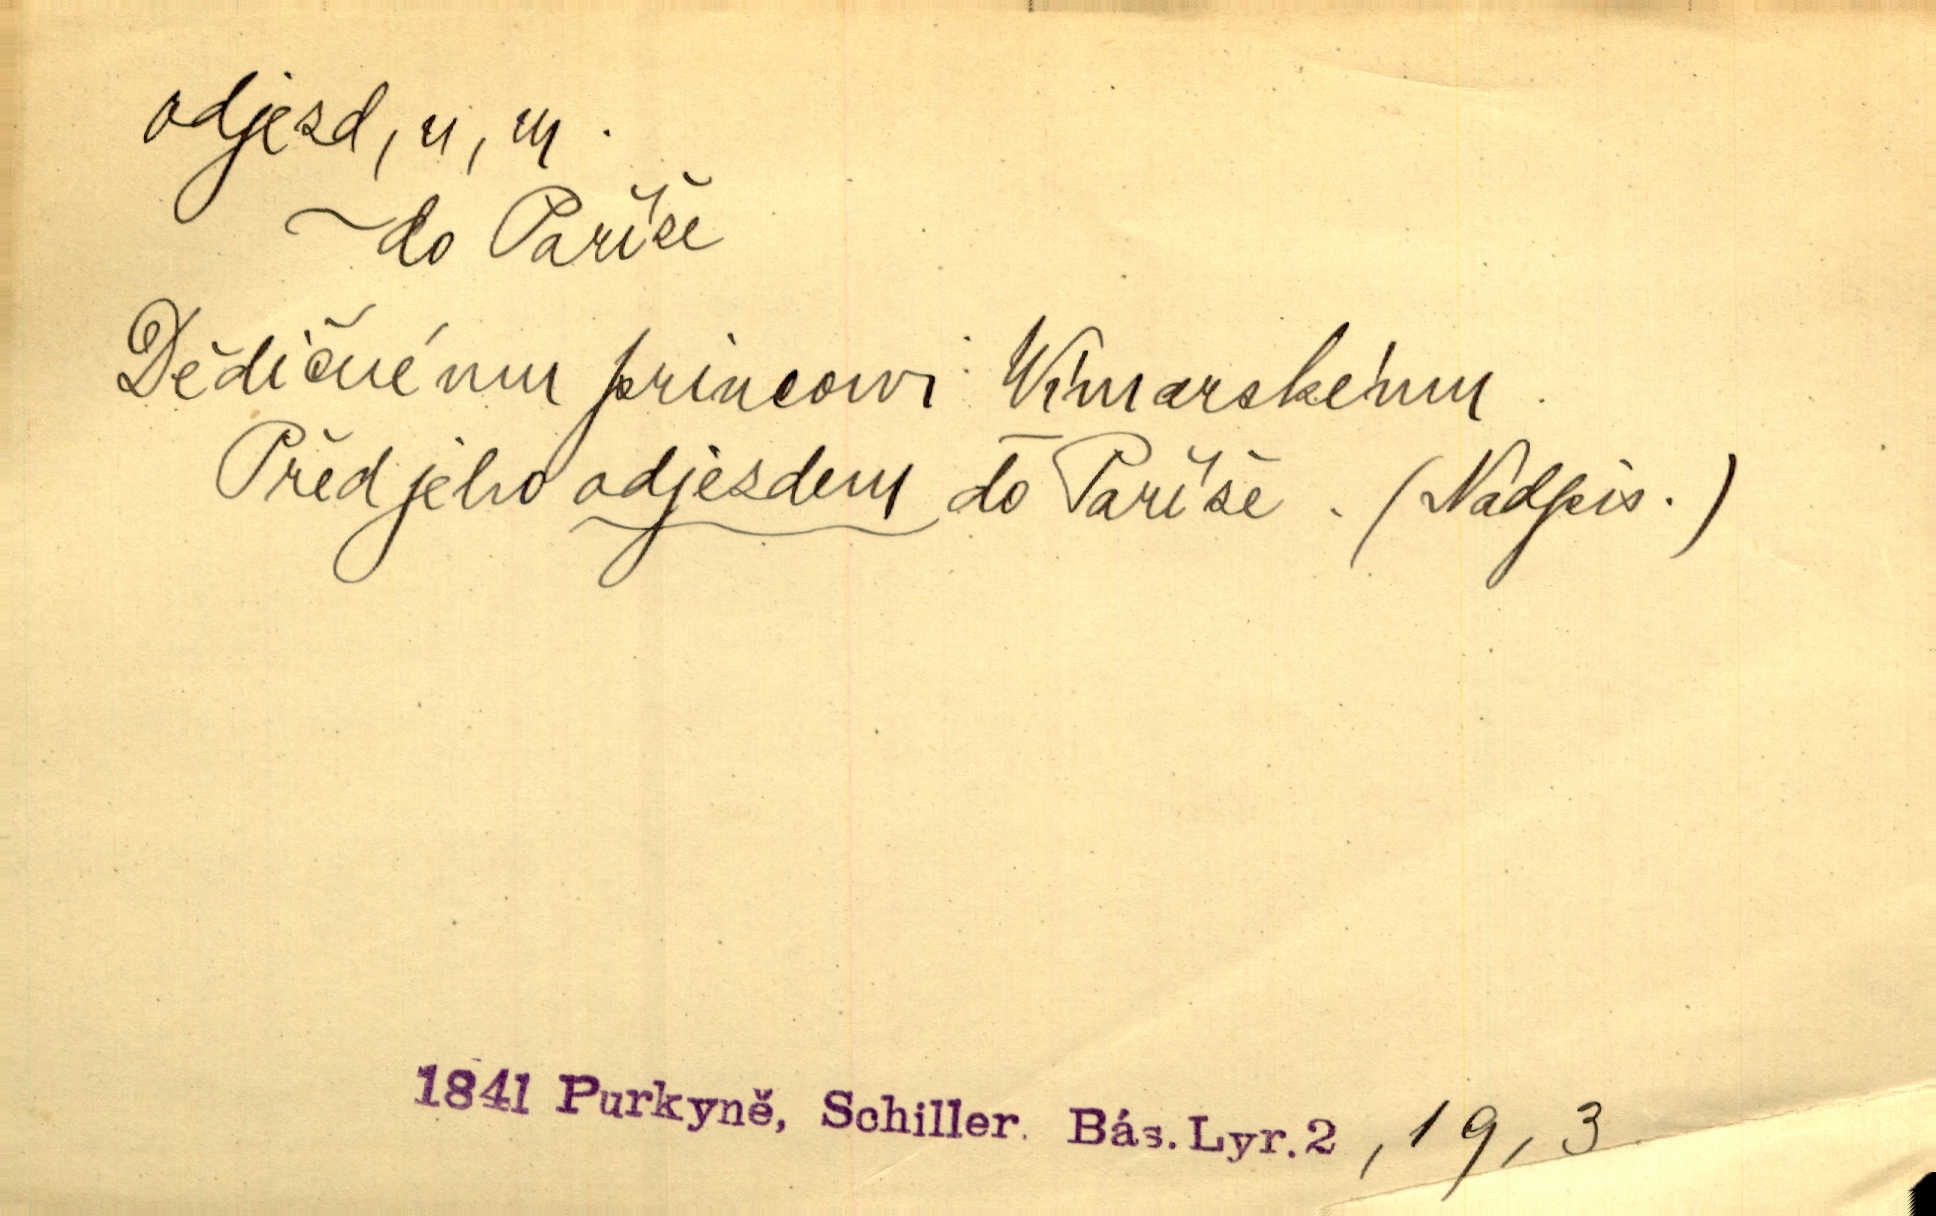 odjezd, u, m.
~ do Paříže
Dědičnému princowi Wímarskému.
Před jeho odjezdem do Paříže. (Nadpis.)
1841 Purkyně, Schiller. Bás. Lyr. 2, 19, 3